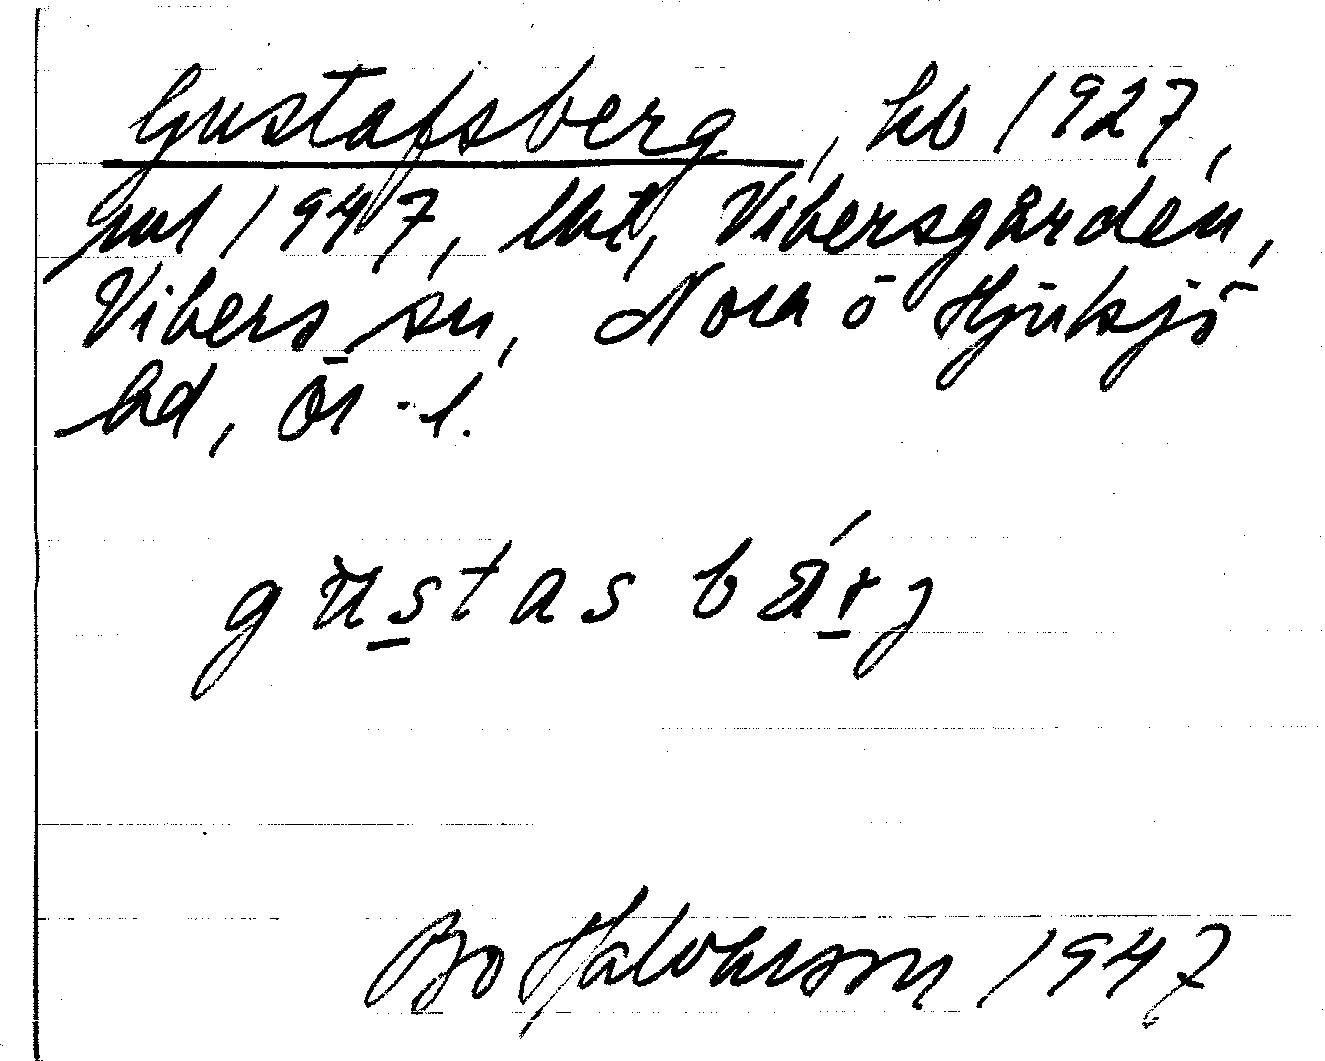 Gustafsberg, hb 1927,
jul 1947, lht, Vibersgården,
Vibers sn, Nora o Hjulsjö
hd, Ör. l.
gustas bärj
Bo Halvarson 1947